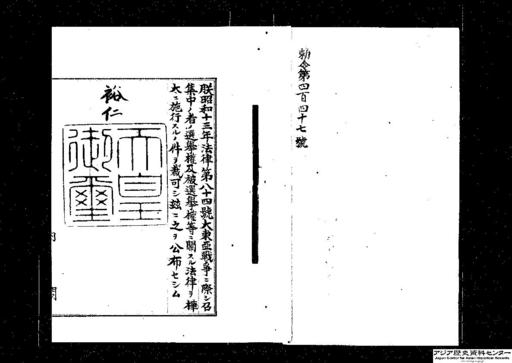 勅令第四百四十七號
朕昭和十三年法律第八十四號大東亞戰爭ニ際シ召
集中ノ者ノ選擧權及被選擧權等ニ關スル法律ヲ樺
太ニ施行スルノ件ヲ裁可シ玆ニ之ヲ公布セシム
裕仁
天皇
御璽
内閣
アジア歴史資料センター
Japan Center for Asian Historical Records